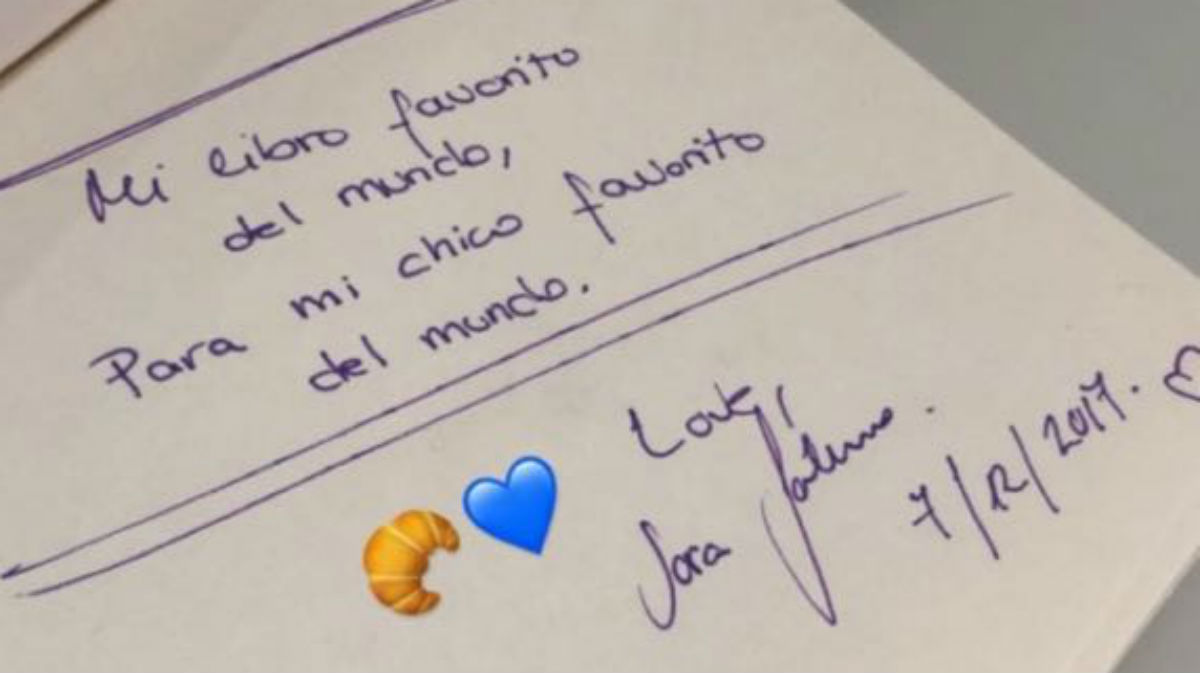 Mi libro favorito
del mundo,
Para mi chico favorito
del mundo.
Love,
Sara
7/12/2017.